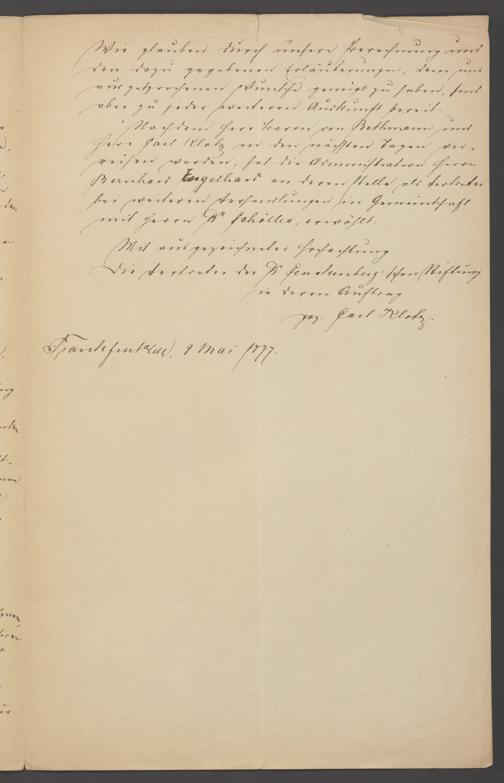 Wir glauben durch unsere Berechnung und
den dazu gegebenen Erläuterungen, dem uns
ausgesprochenen Wunsche genügt zu haben, sind
aber zu jeder weiteren Auskunft bereit.
Nachdem Herr Baron von Bethmann und
Herr Carl Klotz in den nächsten Tagen ver-
reisen werden, hat die Administration Herrn
Bernhard Engelhard an deren Stelle als Vertreter
bei weiteren Verhandlungen in Gemeinschaft
mit Herrn Dr Schölles, erwählt.
Mit ausgezeichneter Hochachtung
Die Vertreter der Dr Senckenberg'schen Stiftung
in deren Auftrag
gez. Carl Klotz.
Frankfurt a/M, 9 Mai 1877.